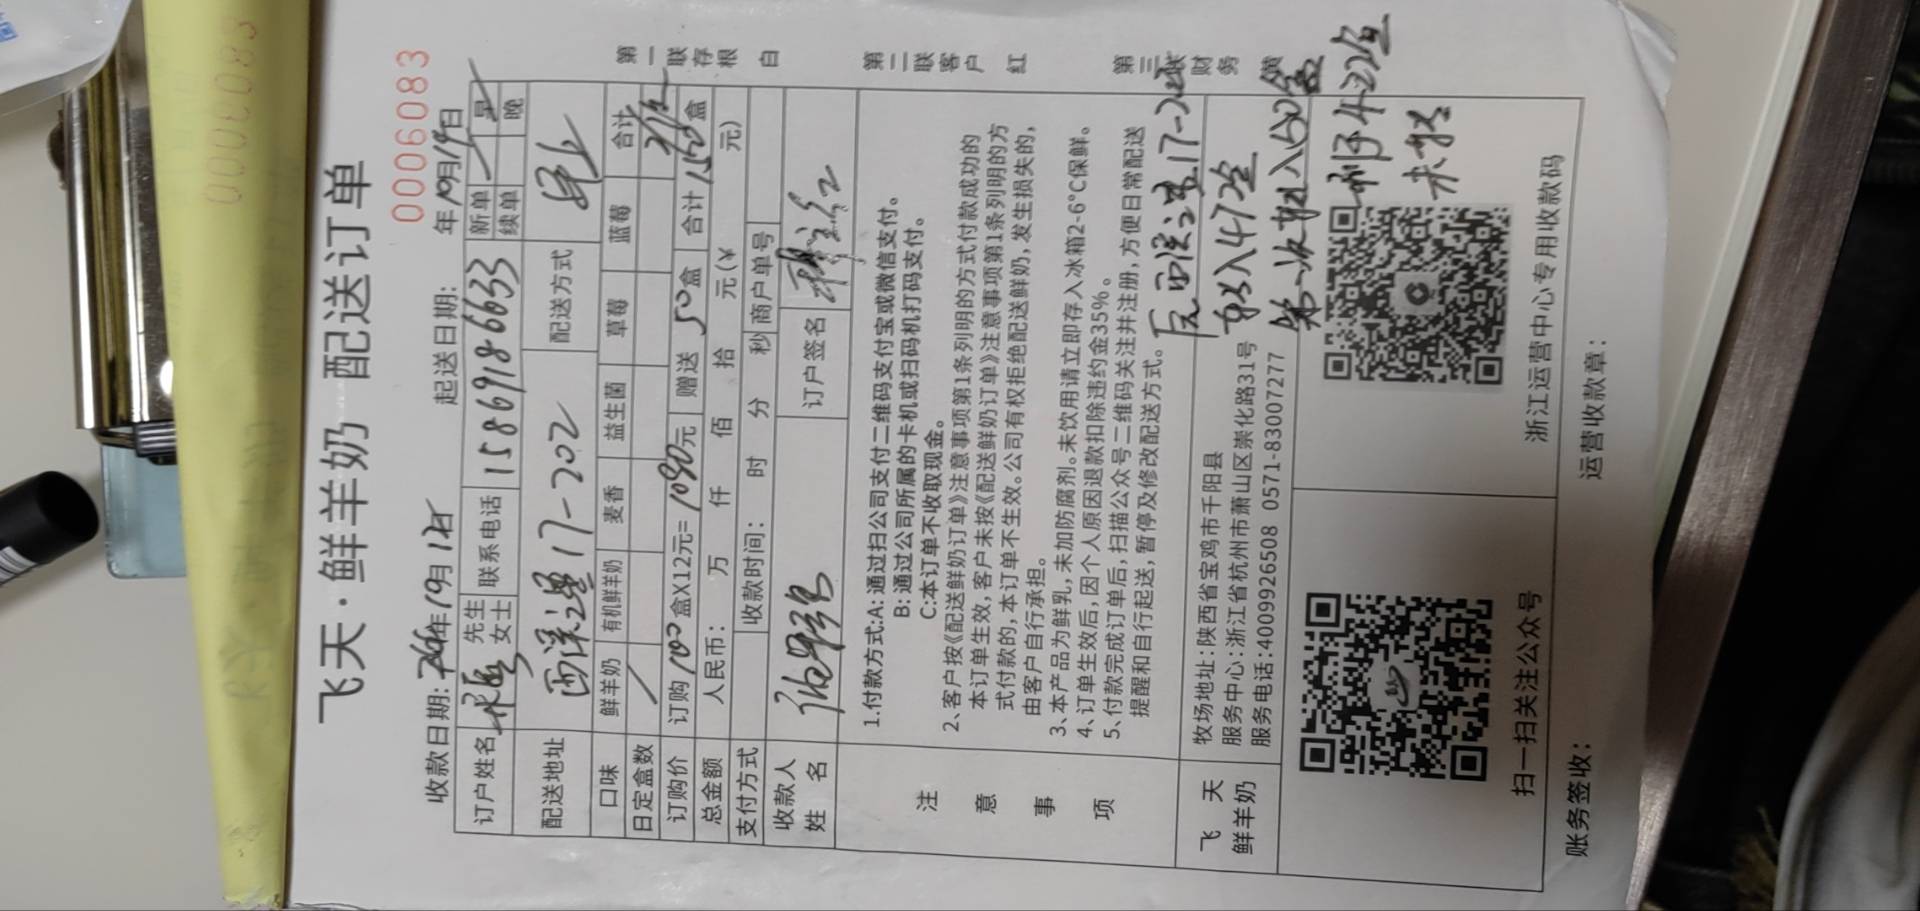 飞天·鲜羊奶 配送订单
0006083
收款日期: 年10月12日 起送日期: 年10月19日
订户姓名 先生 女士 联系电话 15869186633 新单 续单 早 晚
配送地址 西溪 17-202 配送方式
口味 鲜羊奶 有机鲜羊奶 麦香 益生菌 草莓 蓝莓 合计
日定盒数
订购价 订购100盒X12元=1080元 赠送50盒 合计150盒
总金额 人民币: 万 仟 佰 拾 元(¥ 元)
支付方式 收款时间: 时 分 秒 商户单号
收款人姓名 订户签名
第一联存根 白
第二联客户 红
第三联财务 黄
注意事项
1.付款方式:A:通过扫公司支付二维码支付宝或微信支付。
B:通过公司所属的卡机或扫码机打码支付。
C:本订单不收取现金。
2、客户按《配送鲜奶订单》注意事项第1条列明的方式付款成功的
本订单生效,客户未按《配送鲜奶订单》注意事项第1条列明的方
式付款的,本订单不生效。公司有权拒绝配送鲜奶,发生损失的,
由客户自行承担。
3、本产品为鲜乳,未加防腐剂。未饮用请立即存入冰箱2-6°C保鲜。
4、订单生效后,因个人原因退款扣除违约金35%。
5、付款完成订单后,扫描公众号二维码关注并注册,方便日常配送
提醒和自行起送,暂停及修改配送方式。
飞天 鲜羊奶
牧场地址:陕西省宝鸡市千阳县
服务中心:浙江省杭州市萧山区崇化路31号
服务电话:4009926508 0571-83007277
17-202
入47盒
第一次 入50盒
扫一扫关注公众号
浙江运营中心专用收款码
账务签收:
运营收款章: